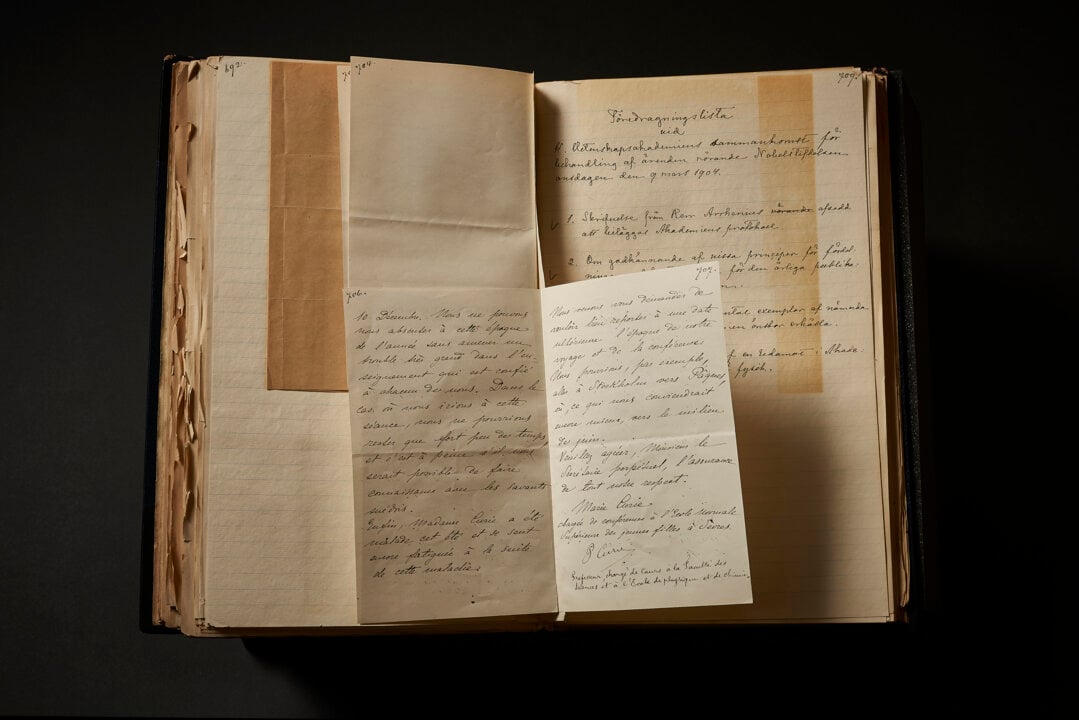 692.
704.
709.
Föredragningslista
vid
K. Vetenskapsakademiens sammankomst för
behandling af ärenden rörande Nobelstiftelsen
onsdagen den 9 mars 1904.
1. Skrifvelse från Herr Arrhenius rörande afsedd
att biläggas Akademiens protokoll.
2. Om godkännande af vissa principer för fördel-
för den årliga publika-
exemplar af nämnda
en önskar erhålla.
f en ledamot i Akade-
fysik.
706.
10 Décembre. Nous ne pouvons
nous absenter à cette époque
de l'année sans amener un
trouble très grand dans l'en-
seignement qui est confié
à chacun de nous. Dans le
cas où nous irions à cette
séance, nous ne pourrions
rester que fort peu de temps
et c'est à peine s'il nous
serait possible de faire
connaissance avec les savants
suédois.
Enfin, Madame Curie a été
malade cet été et se sent
encore fatiguée à la suite
de cette maladie.
707.
Nous venons vous demander de
vouloir bien reporter à une date
ultérieure l'époque de notre
voyage et de la conférence.
Nous pourrions, par exemple,
aller à Stockholm vers Pâques,
ou, ce qui nous conviendrait
encore mieux, vers le milieu
de juin.
Veuillez agréer, Monsieur le
Secrétaire perpétuel, l'assurance
de tout notre respect.
Marie Curie
chargée de conférences à l'Ecole Normale
Supérieure des jeunes filles à Sèvres.
P. Curie
Professeur chargé de cours à la Faculté des
Sciences et à l'Ecole de physique et de chimie.